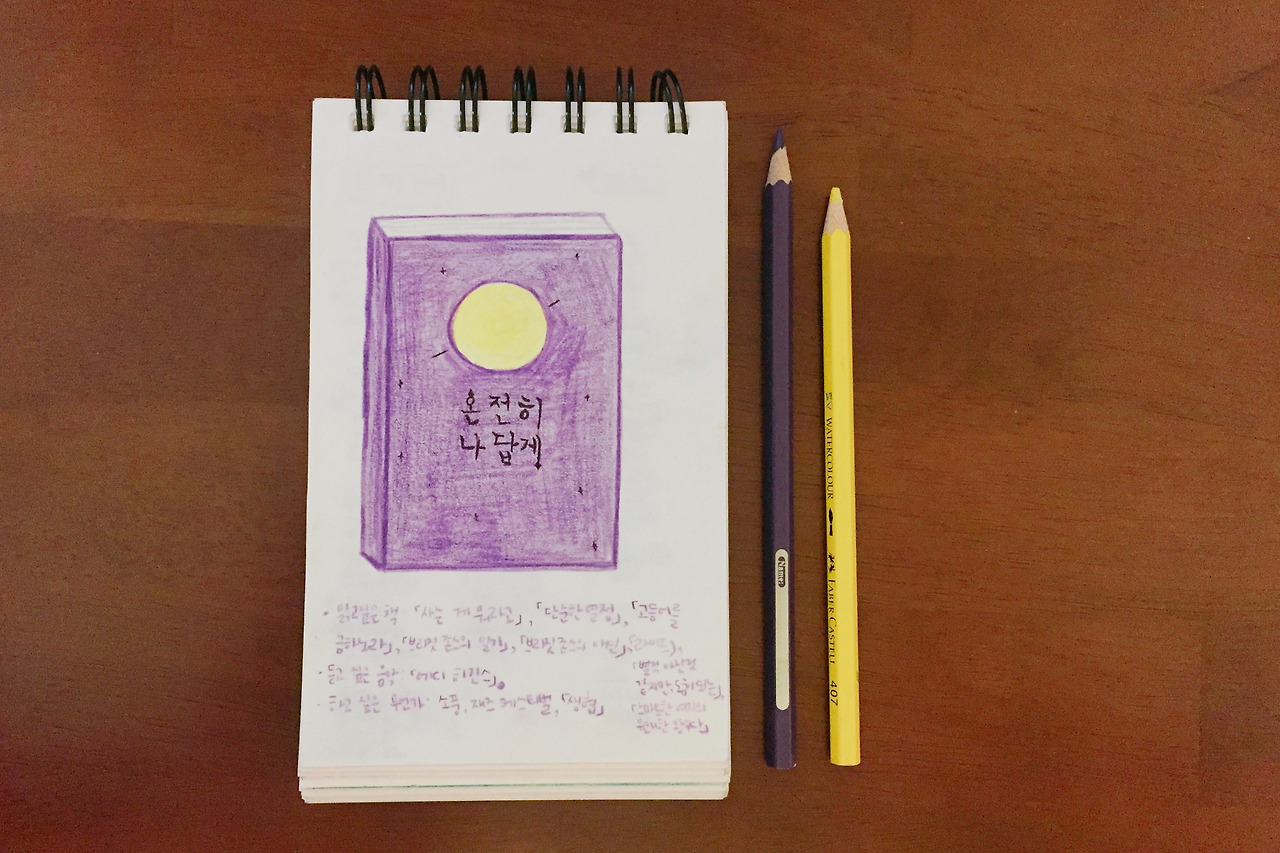 온전히
나답게
· 읽고싶은책 「사는 게 뭐라고」, 「단순한 열정」, 「고등어를
금하노라」, 「브리짓 존스의 일기」, 「브리짓 존스의 애인」,
· 듣고 싶은 음악 「에디 히긴스」
· 하고 싶은 무언가: 소풍, 재즈 페스티벌, 「생협」
「별것 아닌것
같지만, 도움이 되는」
원대한
NAMED
WATERCOLOUR
FABER-CASTELL 407